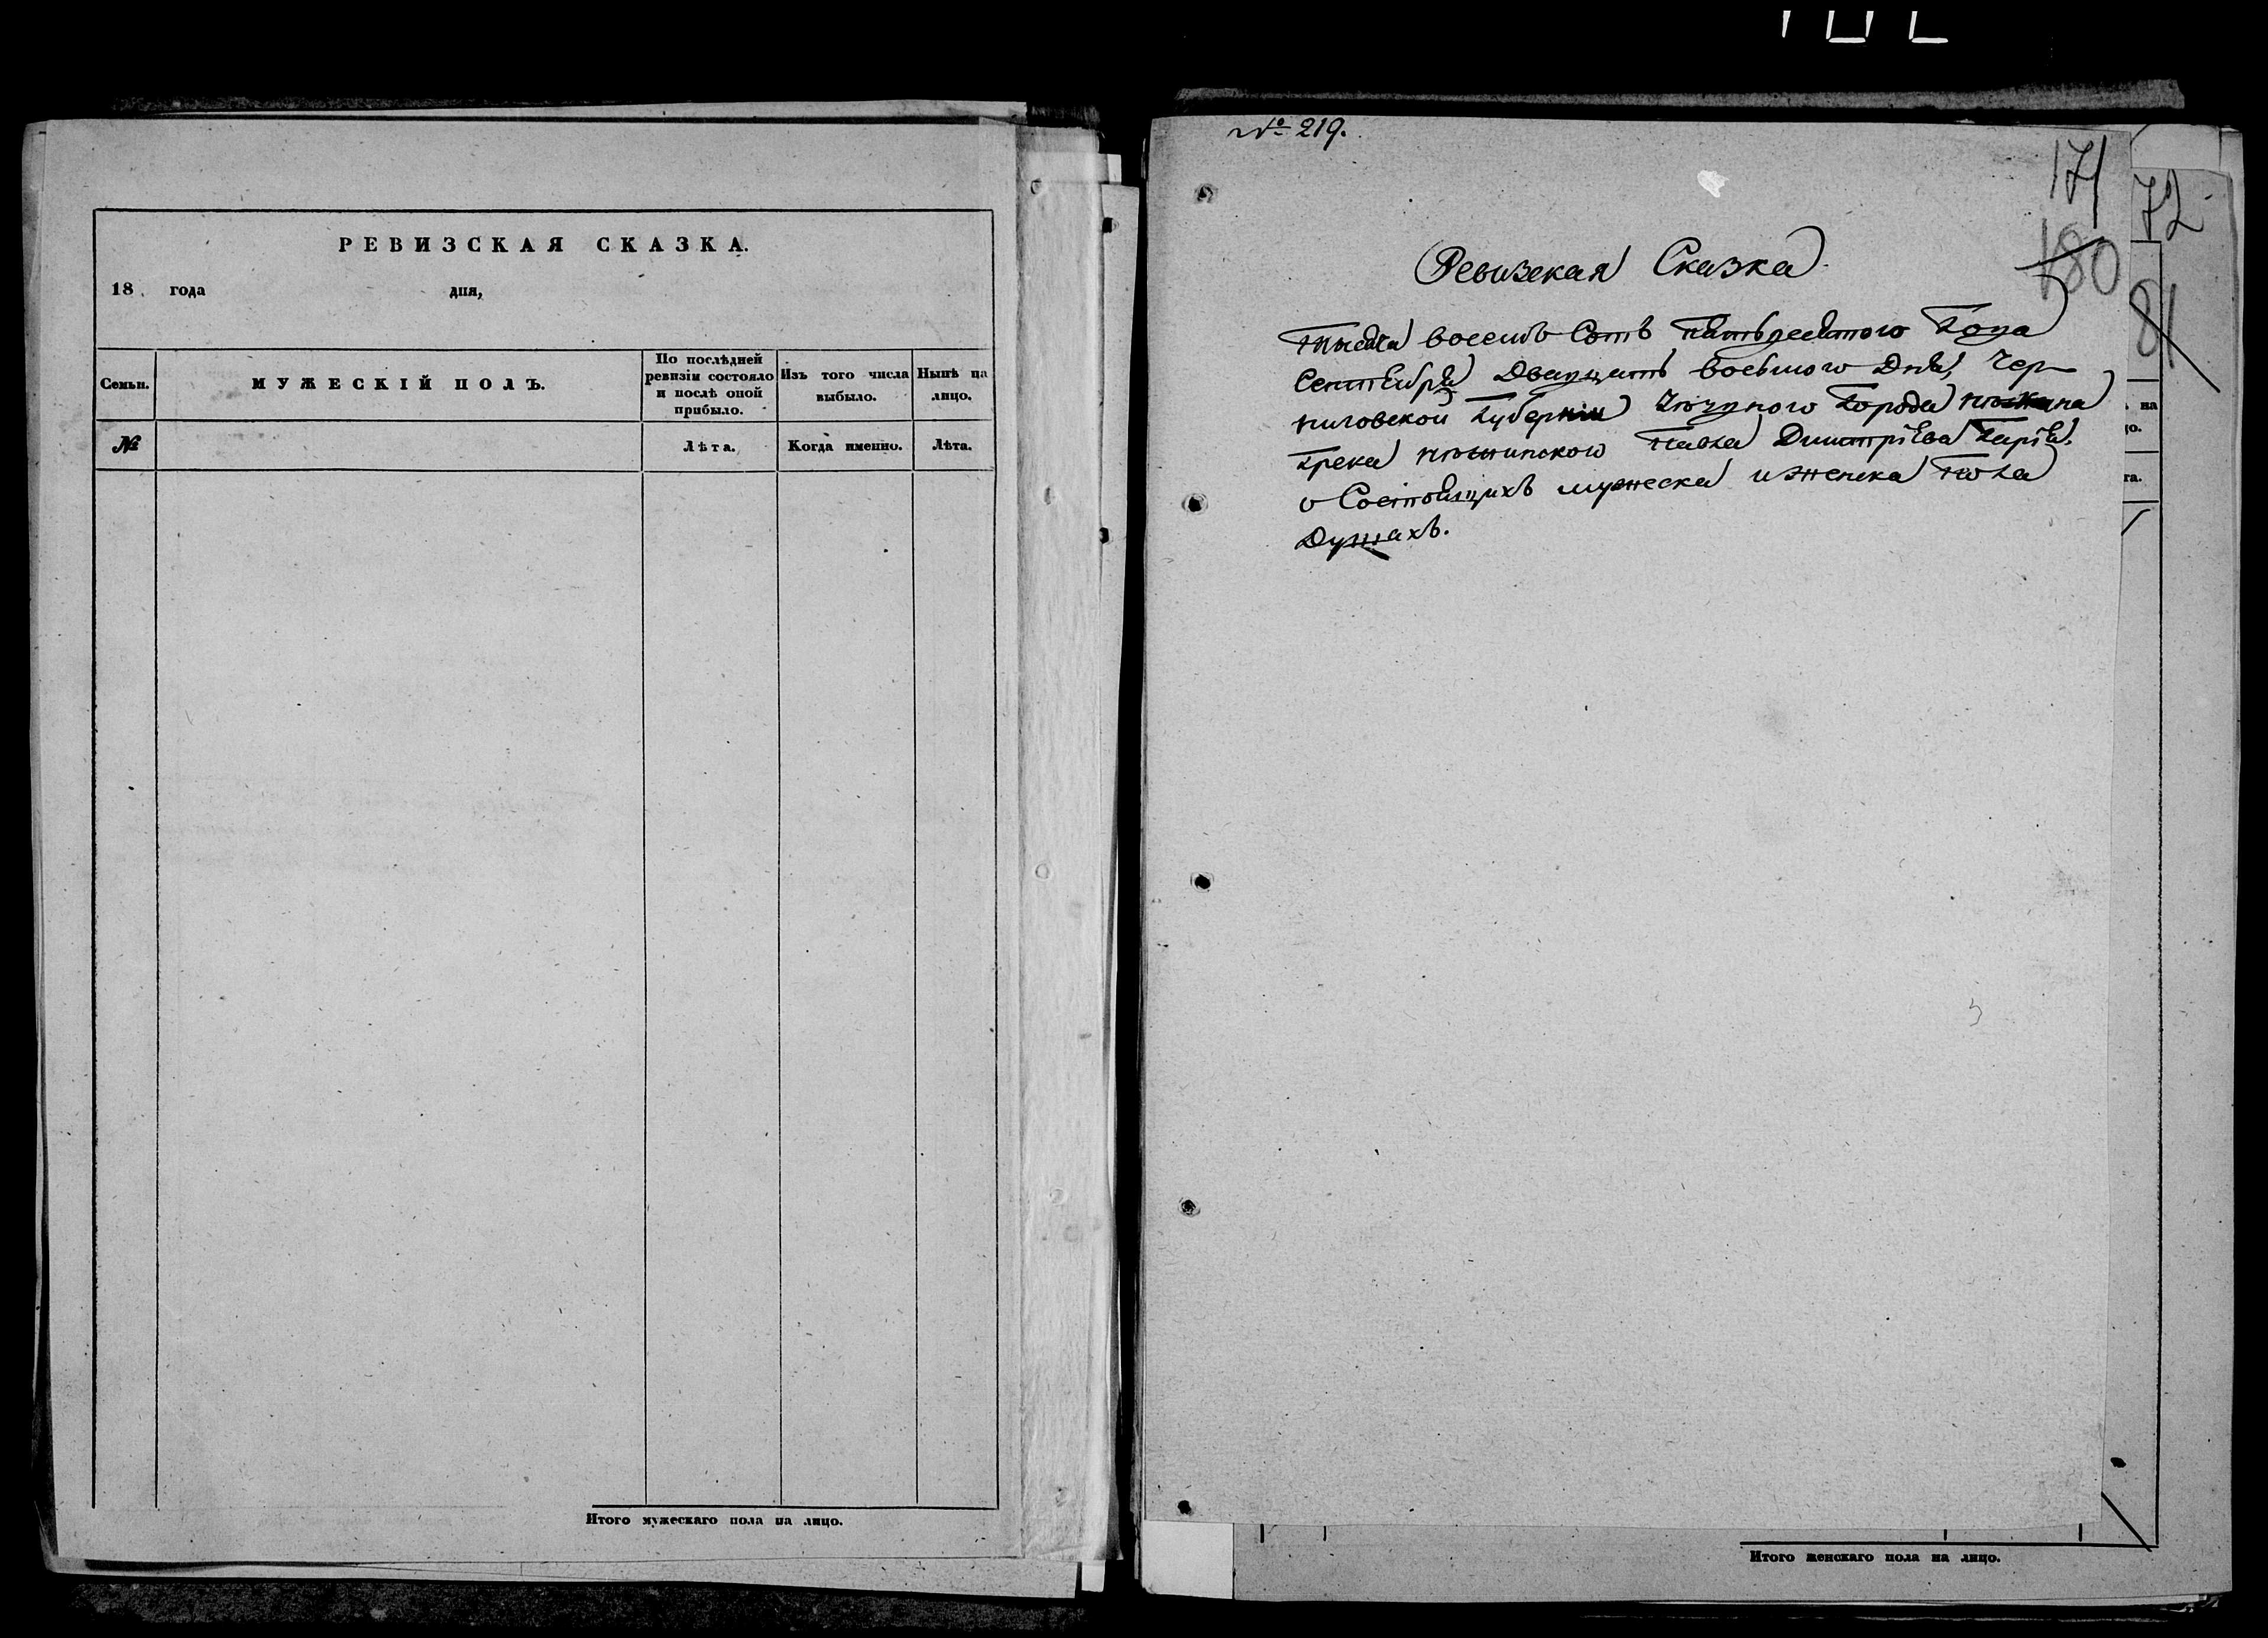 РЕВИЗСКАЯ СКАЗКА.
18 . года дня,
Семьи.
МУЖЕСКІЙ ПОЛЪ.
По послѣдней ревизіи состояло и послѣ оной прибыло.
Изъ того числа выбыло.
Нынѣ на лицо.
№
Лѣта.
Когда именно.
Лѣта.
Итого мужескаго пола на лицо.
№ 219.
171
180
72
81
Ревизская Сказка
тысяча восемь Сотъ пятьдесятого Года
Сентября Двадцать восьмого Дня, Чер
ниговской Губерніи Уѣзного Города нѣжина
Грека нѣжинского Павла Димитріева
о Состоящихъ мужеска и женска пола
Душахъ.
на
цо.
та.
Итого женскаго пола на лицо.